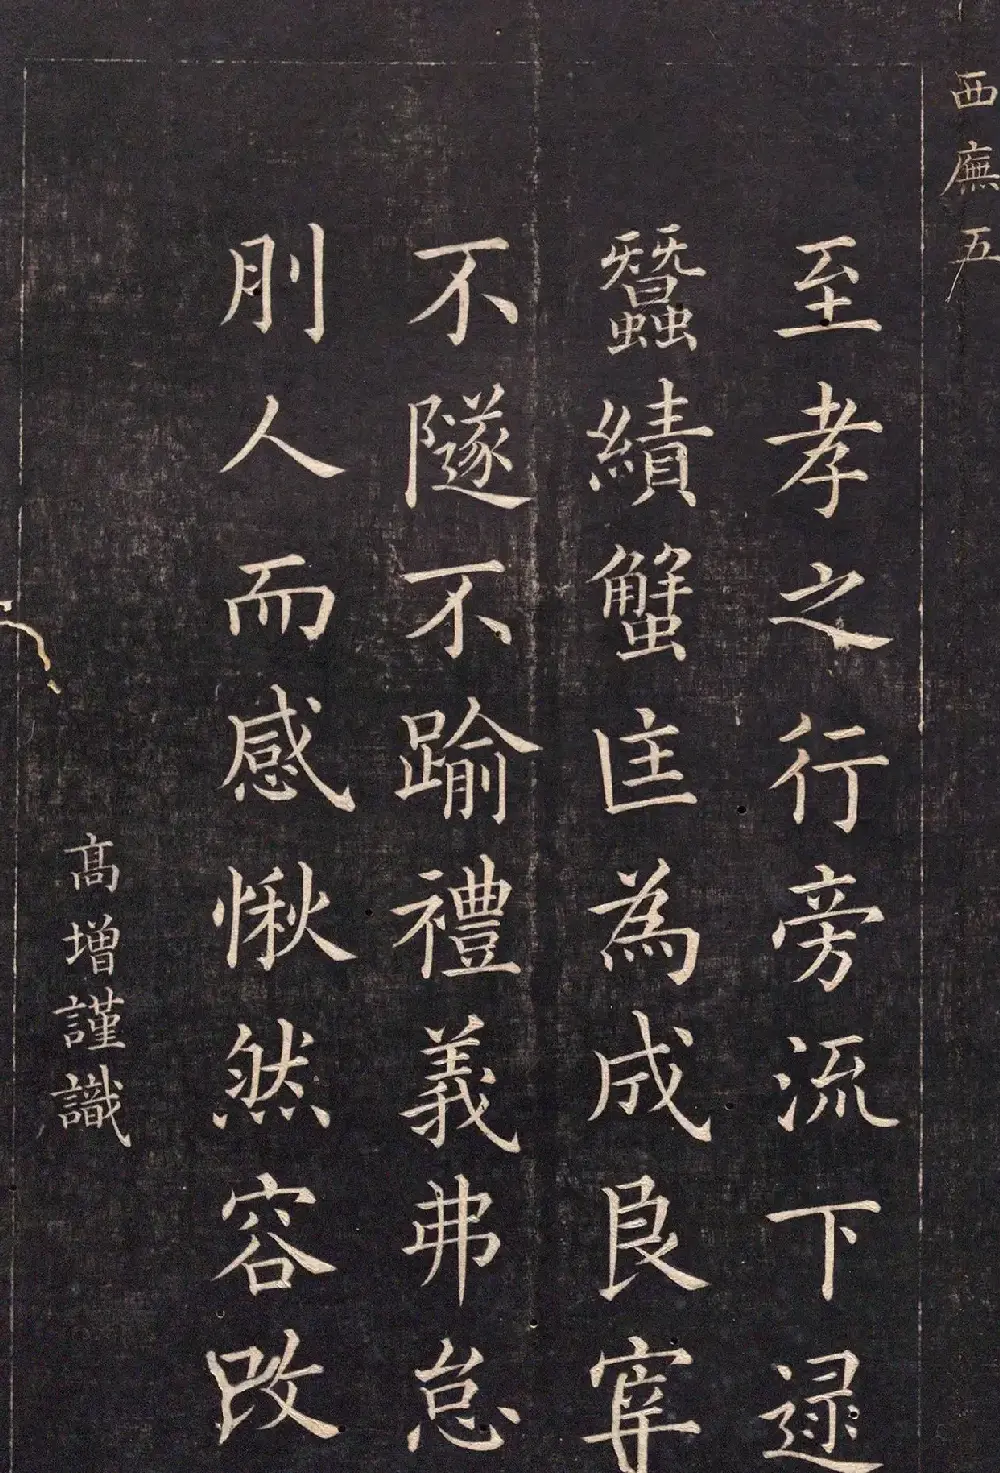 西廡五
至孝之行旁流下逮
蠶績蟹匡為成良宰
不隧不踰禮義弗怠
刖人而感愀然容改
髙增謹識